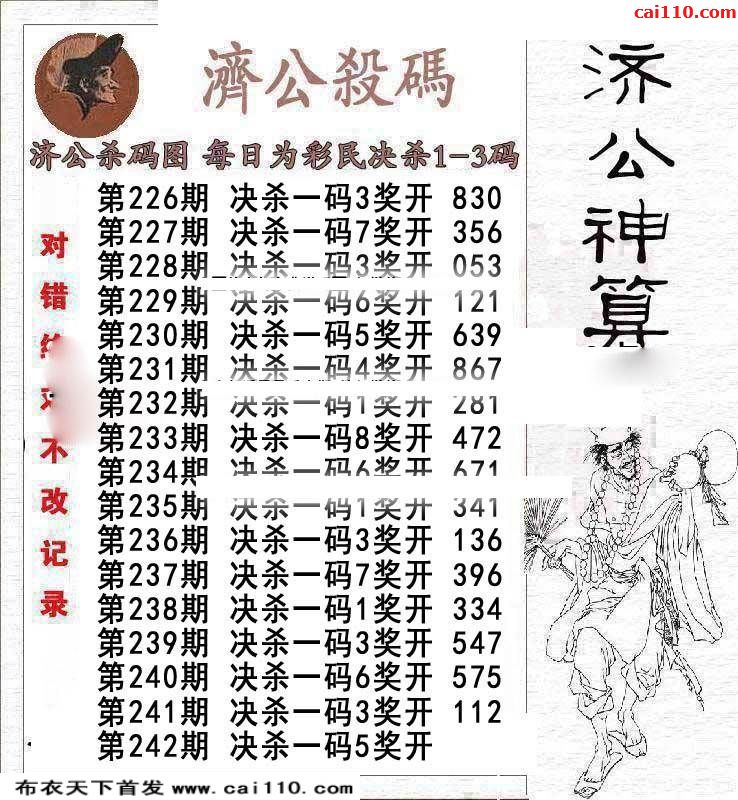 cai110.com
濟公殺碼
济公杀码图 每日为彩民决杀1-3码
第226期 决杀一码3奖开 830
第227期 决杀一码7奖开 356
第228期 决杀一码3奖开 053
第229期 决杀一码6奖开 121
第230期 决杀一码5奖开 639
第231期 决杀一码4奖开 867
第232期 决杀一码1奖开 281
第233期 决杀一码8奖开 472
第234期 决杀一码6奖开 671
第235期 决杀一码1奖开 341
第236期 决杀一码3奖开 136
第237期 决杀一码7奖开 396
第238期 决杀一码1奖开 334
第239期 决杀一码3奖开 547
第240期 决杀一码6奖开 575
第241期 决杀一码3奖开 112
第242期 决杀一码5奖开
对错不改记录
济公神算
布衣天下首发 www.cai110.com